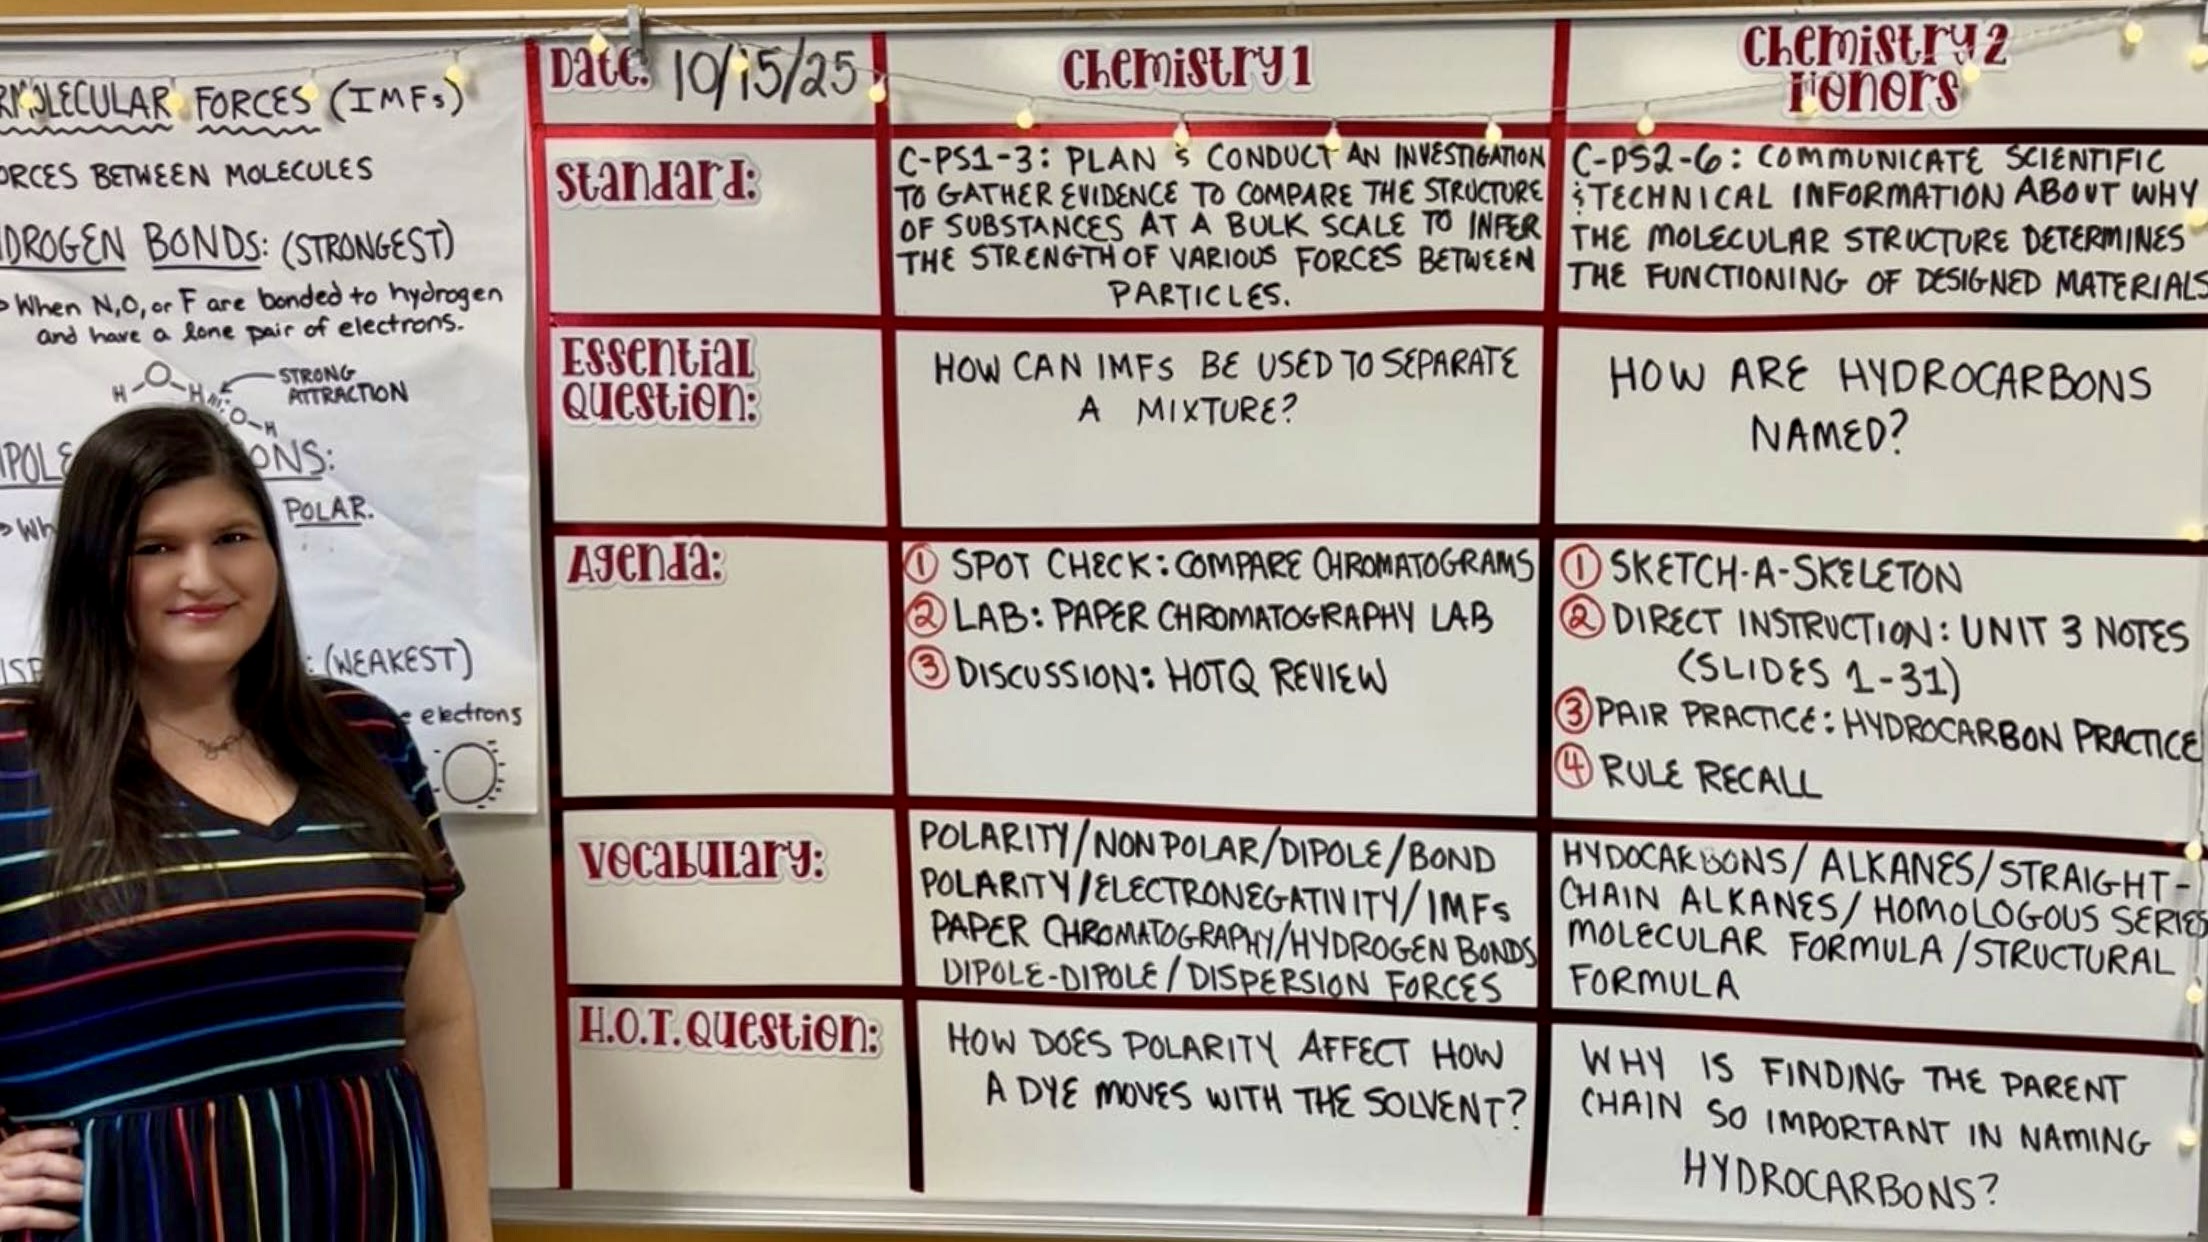 FORCES (IMFs)
BETWEEN MOLECULES
BONDS: (STRONGEST)
When N,O, or F are bonded to hydrogen
and have a lone pair of electrons.
H O H
STRONG
ATTRACTION
O-H
H
POLAR.
(WEAKEST)
electrons
Date: 10/15/25
Chemistry 1
Chemistry 2
Honors
Standard:
C-PS1-3: PLAN & CONDUCT AN INVESTIGATION
TO GATHER EVIDENCE TO COMPARE THE STRUCTURE
OF SUBSTANCES AT A BULK SCALE TO INFER
THE STRENGTH OF VARIOUS FORCES BETWEEN
PARTICLES.
C-PS2-6: COMMUNICATE SCIENTIFIC
& TECHNICAL INFORMATION ABOUT WHY
THE MOLECULAR STRUCTURE DETERMINES
THE FUNCTIONING OF DESIGNED MATERIALS
Essential
Question:
HOW CAN IMFs BE USED TO SEPARATE
A MIXTURE?
HOW ARE HYDROCARBONS
NAMED?
Agenda:
1 SPOT CHECK: COMPARE CHROMATOGRAMS
2 LAB: PAPER CHROMATOGRAPHY LAB
3 DISCUSSION: HOTQ REVIEW
1 SKETCH-A-SKELETON
2 DIRECT INSTRUCTION: UNIT 3 NOTES
(SLIDES 1-31)
3 PAIR PRACTICE: HYDROCARBON PRACTICE
4 RULE RECALL
Vocabulary:
POLARITY/NONPOLAR/DIPOLE/BOND
POLARITY/ELECTRONEGATIVITY/IMFs
PAPER CHROMATOGRAPHY/HYDROGEN BONDS
DIPOLE-DIPOLE/DISPERSION FORCES
HYDOCARBONS/ALKANES/STRAIGHT-
CHAIN ALKANES/HOMOLOGOUS SERIES
MOLECULAR FORMULA/STRUCTURAL
FORMULA
H.O.T. Question:
HOW DOES POLARITY AFFECT HOW
A DYE MOVES WITH THE SOLVENT?
WHY IS FINDING THE PARENT
CHAIN SO IMPORTANT IN NAMING
HYDROCARBONS?